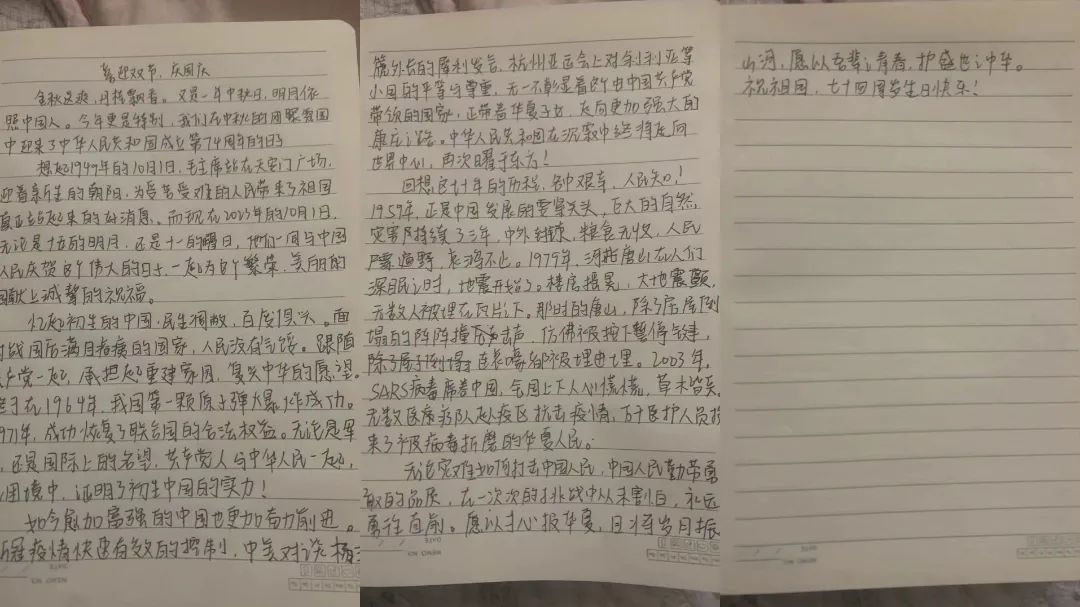 喜迎双节，庆国庆
金秋送爽，丹桂飘香。又是一年中秋日，明月依
照中国人。今年更是特别，我们在中秋的团聚氛围
中迎来了中华人民共和国成立第74周年的日子
想起1949年的10月1日，毛主席站在天安门广场，
迎着新生的朝阳，为受苦受难的人民带来了祖国
真正站起来的好消息。而现在2023年的10月1日，
无论是十五的明月，还是十一的曜日，他们一同与中国
人民庆贺这个伟大的日子，一起为这个繁荣，美丽的
国献上诚挚的祝福。
忆起初生的中国，民生凋敝，百废俱兴。面
对战国后满目疮痍的国家，人民没有气馁。跟随
共产党一起，承担起重建家园，复兴中华的愿望。
终于在1964年，我国第一颗原子弹大爆炸成功。
1971年，成功恢复了联合国的合法权益。无论是军
，还是国际上的名望，共产党人与中华人民一起，
困境中，证明了初生中国的实力！
如今愈加富强的中国也更加奋力前进。
新冠疫情快速有效的控制，中美对谈杨
篪外长的犀利发言，杭州亚运会上对叙利亚等
小国的平等与尊重，无一不彰显着这个由中国共产党
带领的国家，正带着华夏子女，走向更加强大的
康庄之路。中华人民共和国在沉寂中终将走向
世界中心，再次曜于东方！
回想这七十年的历程，各中艰辛，人民知！
1959年，正是中国发展的要紧关头，巨大的自然
灾害严持续了三年，中外封锁，粮食无收，人民
尸横遍野，哀鸿不止。1979年，河北唐山在人们
深眠之时，地震开始了。楼房摇晃，大地震颤，
无数人被埋在瓦片下。那时的唐山，除了房屋倒
塌的阵阵撞击声，仿佛被按下暂停键，
除了房子倒塌连哀嚎都被埋进土里。2003年，
SARS病毒席卷中国，全国上下人心慌慌，草木皆兵
无数医疗队赴疫区抗击疫情，万千医护人员
来了被病毒折磨的华夏人民。
无论灾难如何打击中国人民，中国人民勤劳勇
敢的品质，在一次次的挑战中从未割舍，永远
勇往直前。愿以寸心报华夏，且将岁月振
山河，愿以吾辈之青春，护盛世之中华。
祝祖国，七十四周岁生日快乐！